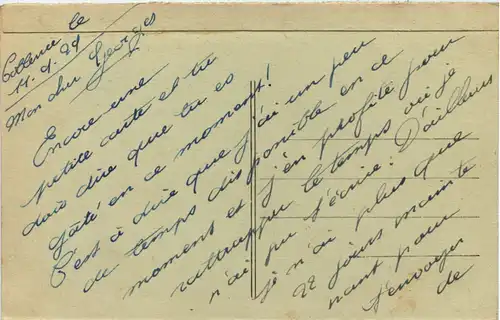 Coblence le
11.4.29
Mon cher Georges
Encore une
petite carte et tu
dois dire que tu es
gâté en ce moment!
C'est à dire que j'ai un peu
de temps disponible en ce
moment et j'en profite pour
rattrapper le temps où je
n'ai pu t'écrire. D'ailleurs
je n'ai plus que
22 jours mainte
nant pour
t'envoyer
de